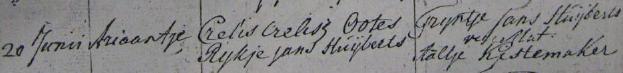 20 Junii Ariaantje Crelis Crelisz Ootes Tryntje Jans Stuijberts
Rykje Jans Stuijberts
Aaltje Kistemaker